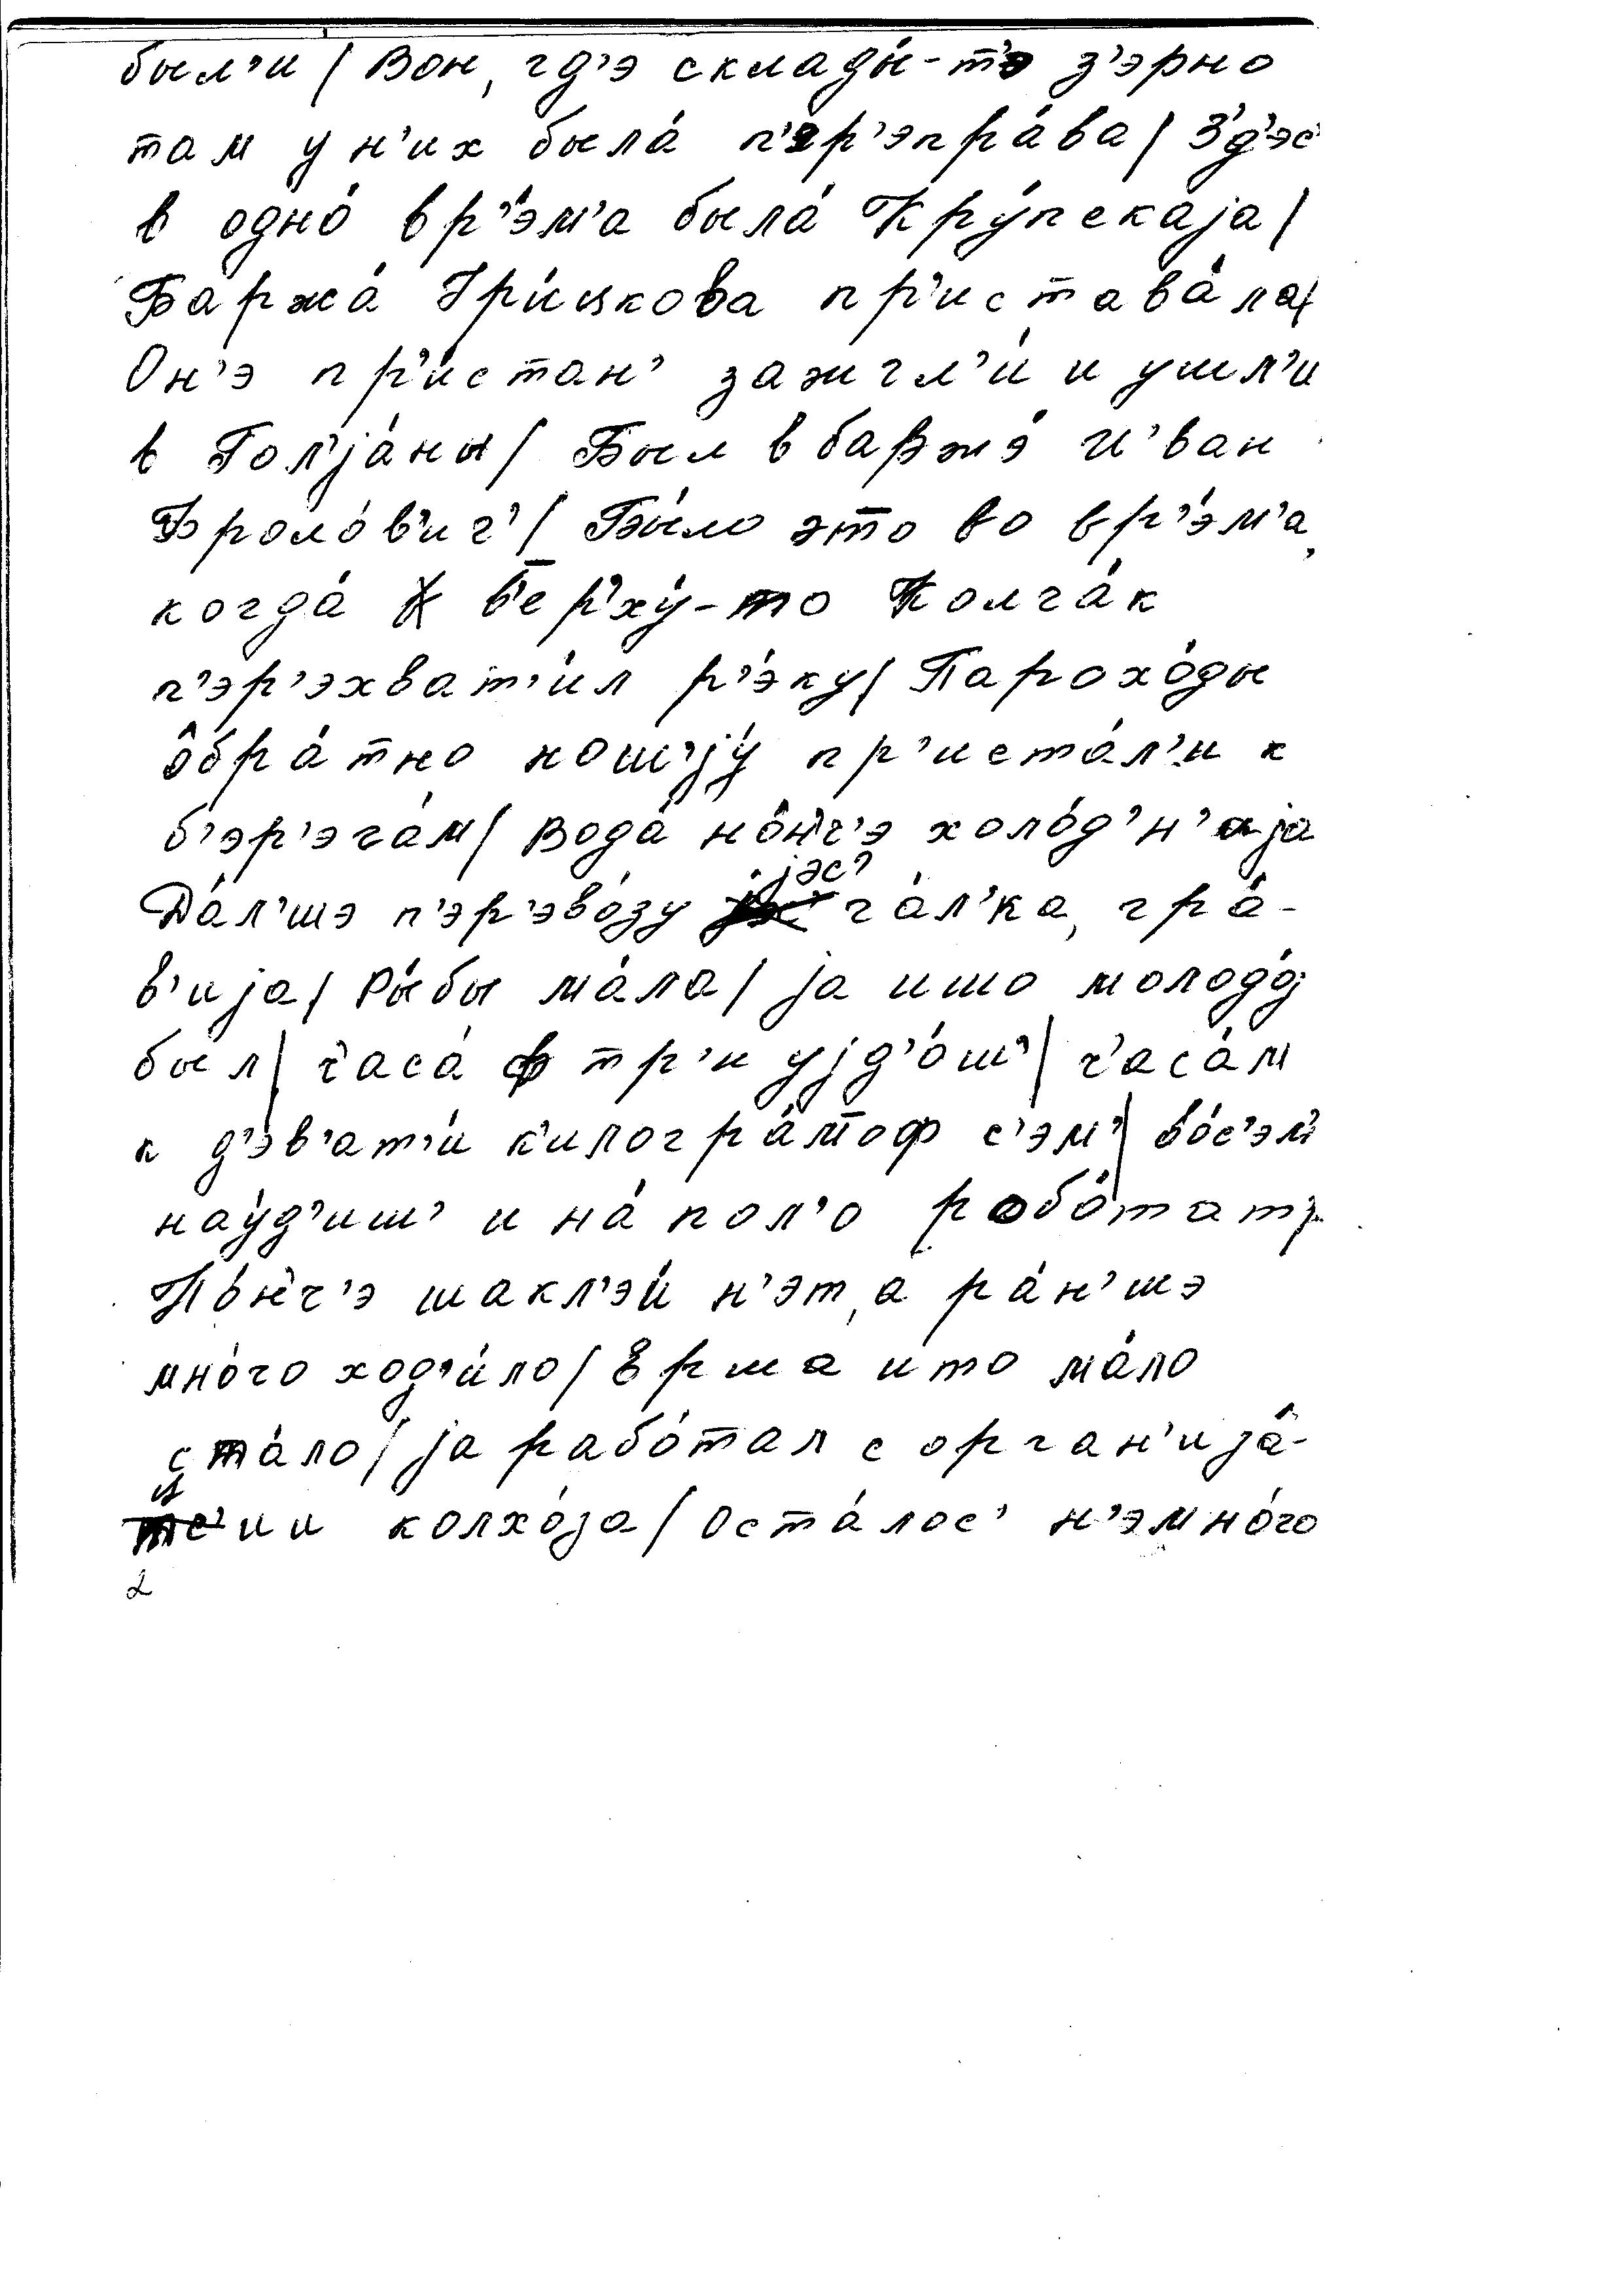 был'и / Вон, гд'э склады́-то з'эрно
там у н'их была́ п'эр'эпра́ва / З'д'эс'
в одно́ вр'э́м'а была́ Кру́пскаjа /
Баржа́ Гри́цкова пр'истава́ла /
Он'э пр'и́стан' зажгл'и́ и ушл'и
в Гол'jа́ны / Был в баржэ́ И'ван
Фроло́в'ич' / Бы́ло это во вр'э́м'а,
когда́ к в'ерху́-то Колча́к
п'эр'эхват'и́л р'э́ку / Парохо́ды
о̂бра́тно ношjу́ пр'иста́л'и к
б'эр'эга́м / Вода́ но̂н'ч'э холо́д'н'аjа
Да́л'шэ п'эр'эво́зу jэс' га́л'ка, гра́-
в'иjа / Ры́бы ма́ла / jа ишо молодо́j
был / ч'аса́ в тр'и уjд'о́ш' / ч'аса́м
к д'эв'ат'и́ к'илогра́моф с'эм' / во́с'эм'
нау́д'иш' и на́ пол'о робо́тат'
Но́н'ч'э шакл'эи́ н'эт, а ра́н'шэ
мно́го ход'и́ло / Ерша и то ма́ло
ста́ло / jа рабо́тал с орган'иjа́-
ц'ии колхо́за / Оста́лос' н'эмно́го
2